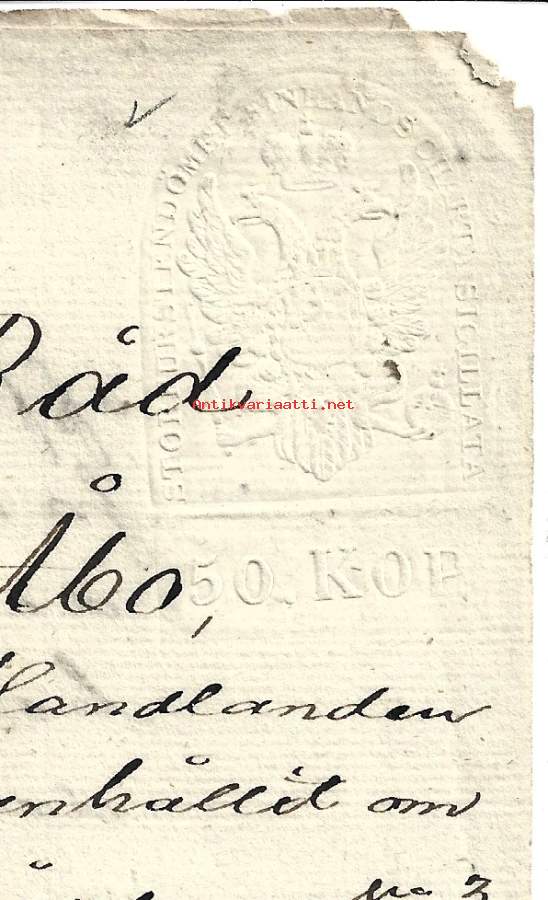 STORFURSTENDÖMET FINLANDS CHARTA SIGILLATA
Råd
Antikvariaatti.net
Åbo,
50. KOP.
Handlanden
enhållit om